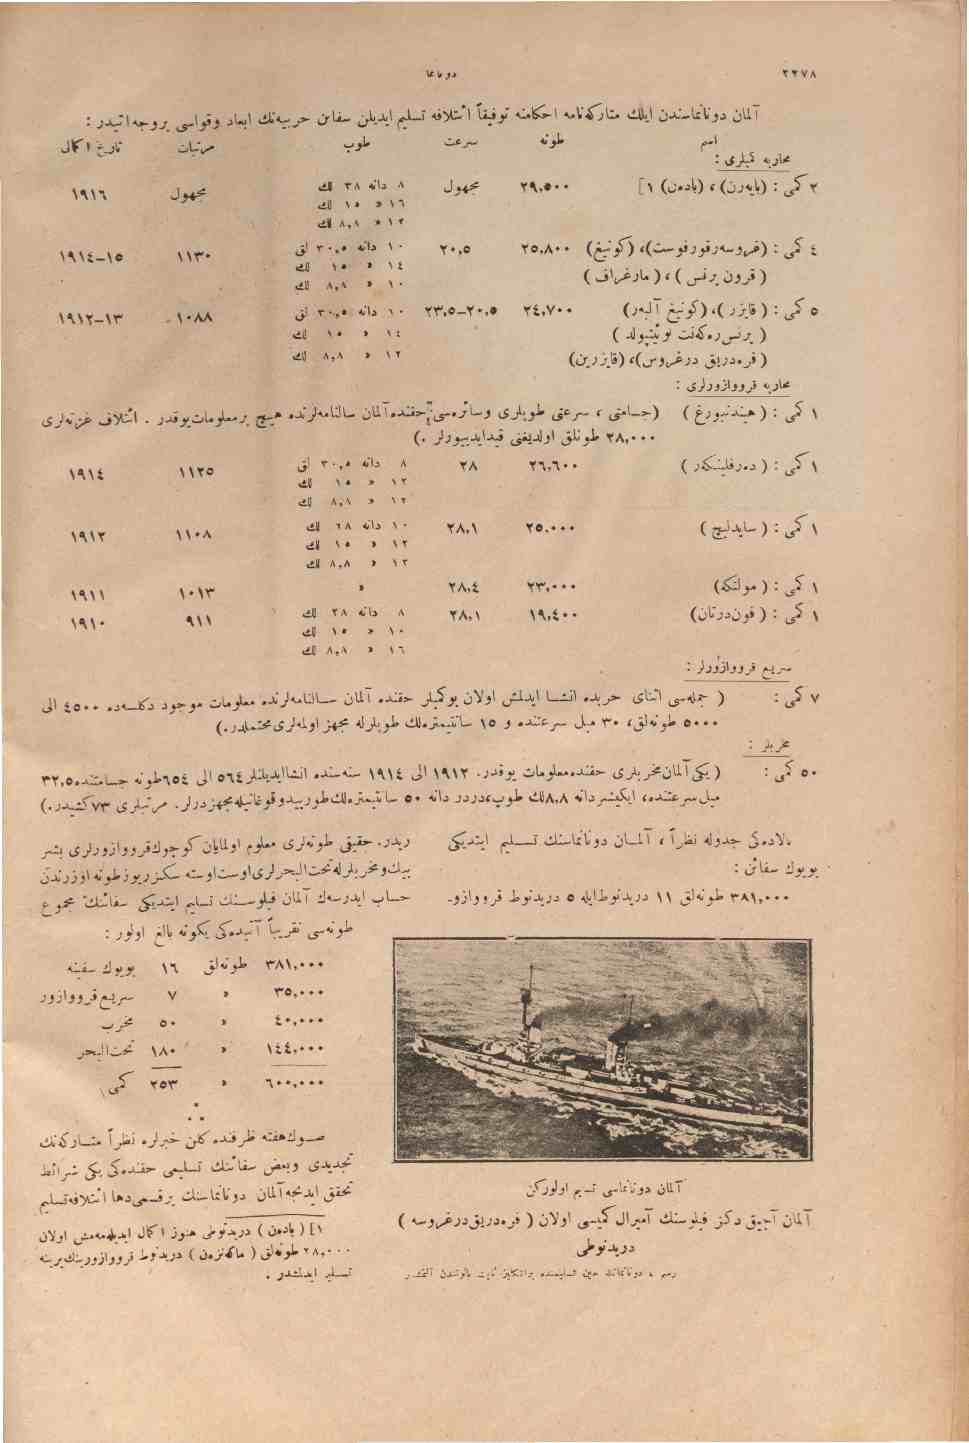 ٢٢٧٨
دونانما
آلمان دونانماسندن ایلك متاركه‌نامه احكامنه توفیقاً ائتلافه تسلیم ایدیلن سفائن حربیه‌نك ابعاد وقواسی بروجه‌آتیدر :
اسم طونه سرعت طوپ مرتبات تاریخ اكمالی
محاربه كمیلری :
٢ كمی : (بایه‌رن)، (باده‌ن) [١ ٢٩,٥٠٠ مجهول ٨ دانه ٣٨ لك مجهول ١٩١٦
١٦ » ١٥ لك
١٢ » ٨,٨ لك
٤ كمی : (غروسه‌رقورفوست)، (كونیغ) ٢٥,٨٠٠ ٢٠,٥ ١٠ دانه ٣٠,٥ لق ١١٣٠ ١٩١٤–١٥
( قرون پرنس ) ، ( مارغراف ) ١٤ » ١٥ لك
١٠ » ٨,٨ لك
٥ كمی : ( قایزر )، (كونیغ آلبه‌ر) ٢٤,٧٠٠ ٢٣,٥–٢٠,٥ ١٠ دانه ٣٠,٥ لق ١٠٨٨ ١٩١٢–١٣
( پرنس‌ره‌كه‌نت لوئیتپولد ) ١٤ » ١٥ لك
( فره‌دریق درغروس)، (قایزرین) ١٢ » ٨,٨ لك
محاربه قرووازورلری :
١ كمی : ( هیندنبورغ ) (جسامتی ، سرعتی طوپلری وسائره‌سی حقنده آلمان سالنامه‌لرنده هیچ برمعلومات‌یوقدر . ائتلاف غزته‌لری
٢٨,٠٠٠ طونلق اولدیغنی قیدایدییورلر .)
١ كمی : ( ده‌رفلینكه‌ر ) ٢٦,٦٠٠ ٢٨ ٨ دانه ٣٠,٥ لق ١١٢٥ ١٩١٤
١٢ » ١٥ لك
١٢ » ٨,٨ لك
١ كمی : ( سایدلیچ ) ٢٥,٠٠٠ ٢٨,١ ١٠ دانه ٢٨ لك ١١٠٨ ١٩١٢
١٢ » ١٥ لك
١٢ » ٨,٨ لك
١ كمی : ( مولتكه) ٢٣,٠٠٠ ٢٨,٤ » ١٠١٣ ١٩١١
١ كمی : ( فون‌درتان) ١٩,٤٠٠ ٢٨,١ ٨ دانه ٢٨ لك ٩١١ ١٩١٠
١٠ » ١٥ لك
١٦ » ٨,٨ لك
سریع قرووازورلر :
٧ كمی : ( جمله‌سی اثنای حربده انشا ایدلمش اولان بوكمیلر حقنده آلمان سالنامه‌لرنده معلومات موجود دكلسه‌ده ٤٥٠٠ الی
٥٠٠٠ طونه‌لق، ٣٠ میل سرعتنده و ١٥ سانتیمتره‌لك طوپلرله مجهز اولمه‌لری‌محتملدر.)
مخربلر :
٥٠ كمی : ( یكی آلمان‌مخربلری حقنده‌معلومات یوقدر. ١٩١٢ الی ١٩١٤ سنه‌سنده انشاایدیلنلر٥٦٤ الی ٦٥٤طونه جسامتنده٣٢,٥
میل‌سرعتنده، ایكیشردانه ٨,٨لك طوپ،دردر دانه ٥٠ سانتیمتره‌لك‌طورپیدوقوغانیله‌مجهزدرلر. مرتبلری ٧٣كشیدر.)
بالاده‌كی جدوله نظراً ، آلمان دونانماسنك تسلیم ایتدیكی
بویوك سفائن :
٣٨١,٠٠٠ طونه‌لق ١١ دریدنوط‌ایله ٥ دریدنوط قرووازو-
ریدر. حقیقی طونه‌لری معلوم اولمایان كوچوك‌قرووازورلری بشر
بیك‌ومخربلرله تحت‌البحرلری‌اوست‌اوسته سكزریوزطونه اوزرندن
حساب ایدرسه‌ك آلمان فیلوسنك تسلیم ایتدیكی سفائنك مجموع
طونه‌سی تقریباً آتیده‌كی یكونه بالغ اولور :
٣٨١,٠٠٠ طونه‌لق ١٦ بویوك سفینه
٣٥,٠٠٠ » ٧ سریع‌قرووازور
٤٠,٠٠٠ » ٥٠ مخرب
١٤٤,٠٠٠ » ١٨٠ تحت‌البحر
٦٠٠,٠٠٠ » ٢٥٣ كمی
صوك‌هفته ظرفنده كلن خبرلره نظراً متاركه‌نك
تجدیدی وبعض سفائنك تسلیمی حقنده‌كی یكی شرائط
تحقق ایدنجه‌آلمان دونانماسنك برقسمی‌دها ائتلافه‌تسلیم
١] ( باده‌ن ) دریدنوطی هنوز اكمال ایدیله‌مه‌مش اولان
٢٨,٠٠٠ طونه‌لق ( ماكه‌نزه‌ن ) دریدنوط قرووازورینك‌یرینه
تسلیم ایدلمشدر .
آلمان دونانماسی تسلیم اولوركن
آلمان آچیق دكز فیلوسنك آمیرال كمیسی اولان ( فره‌دریق‌درغروسه )
دریدنوطی
رسم ، دونانمانك حین تسلیمنده برانكلیز ثابت بالونندن آلنمشدر